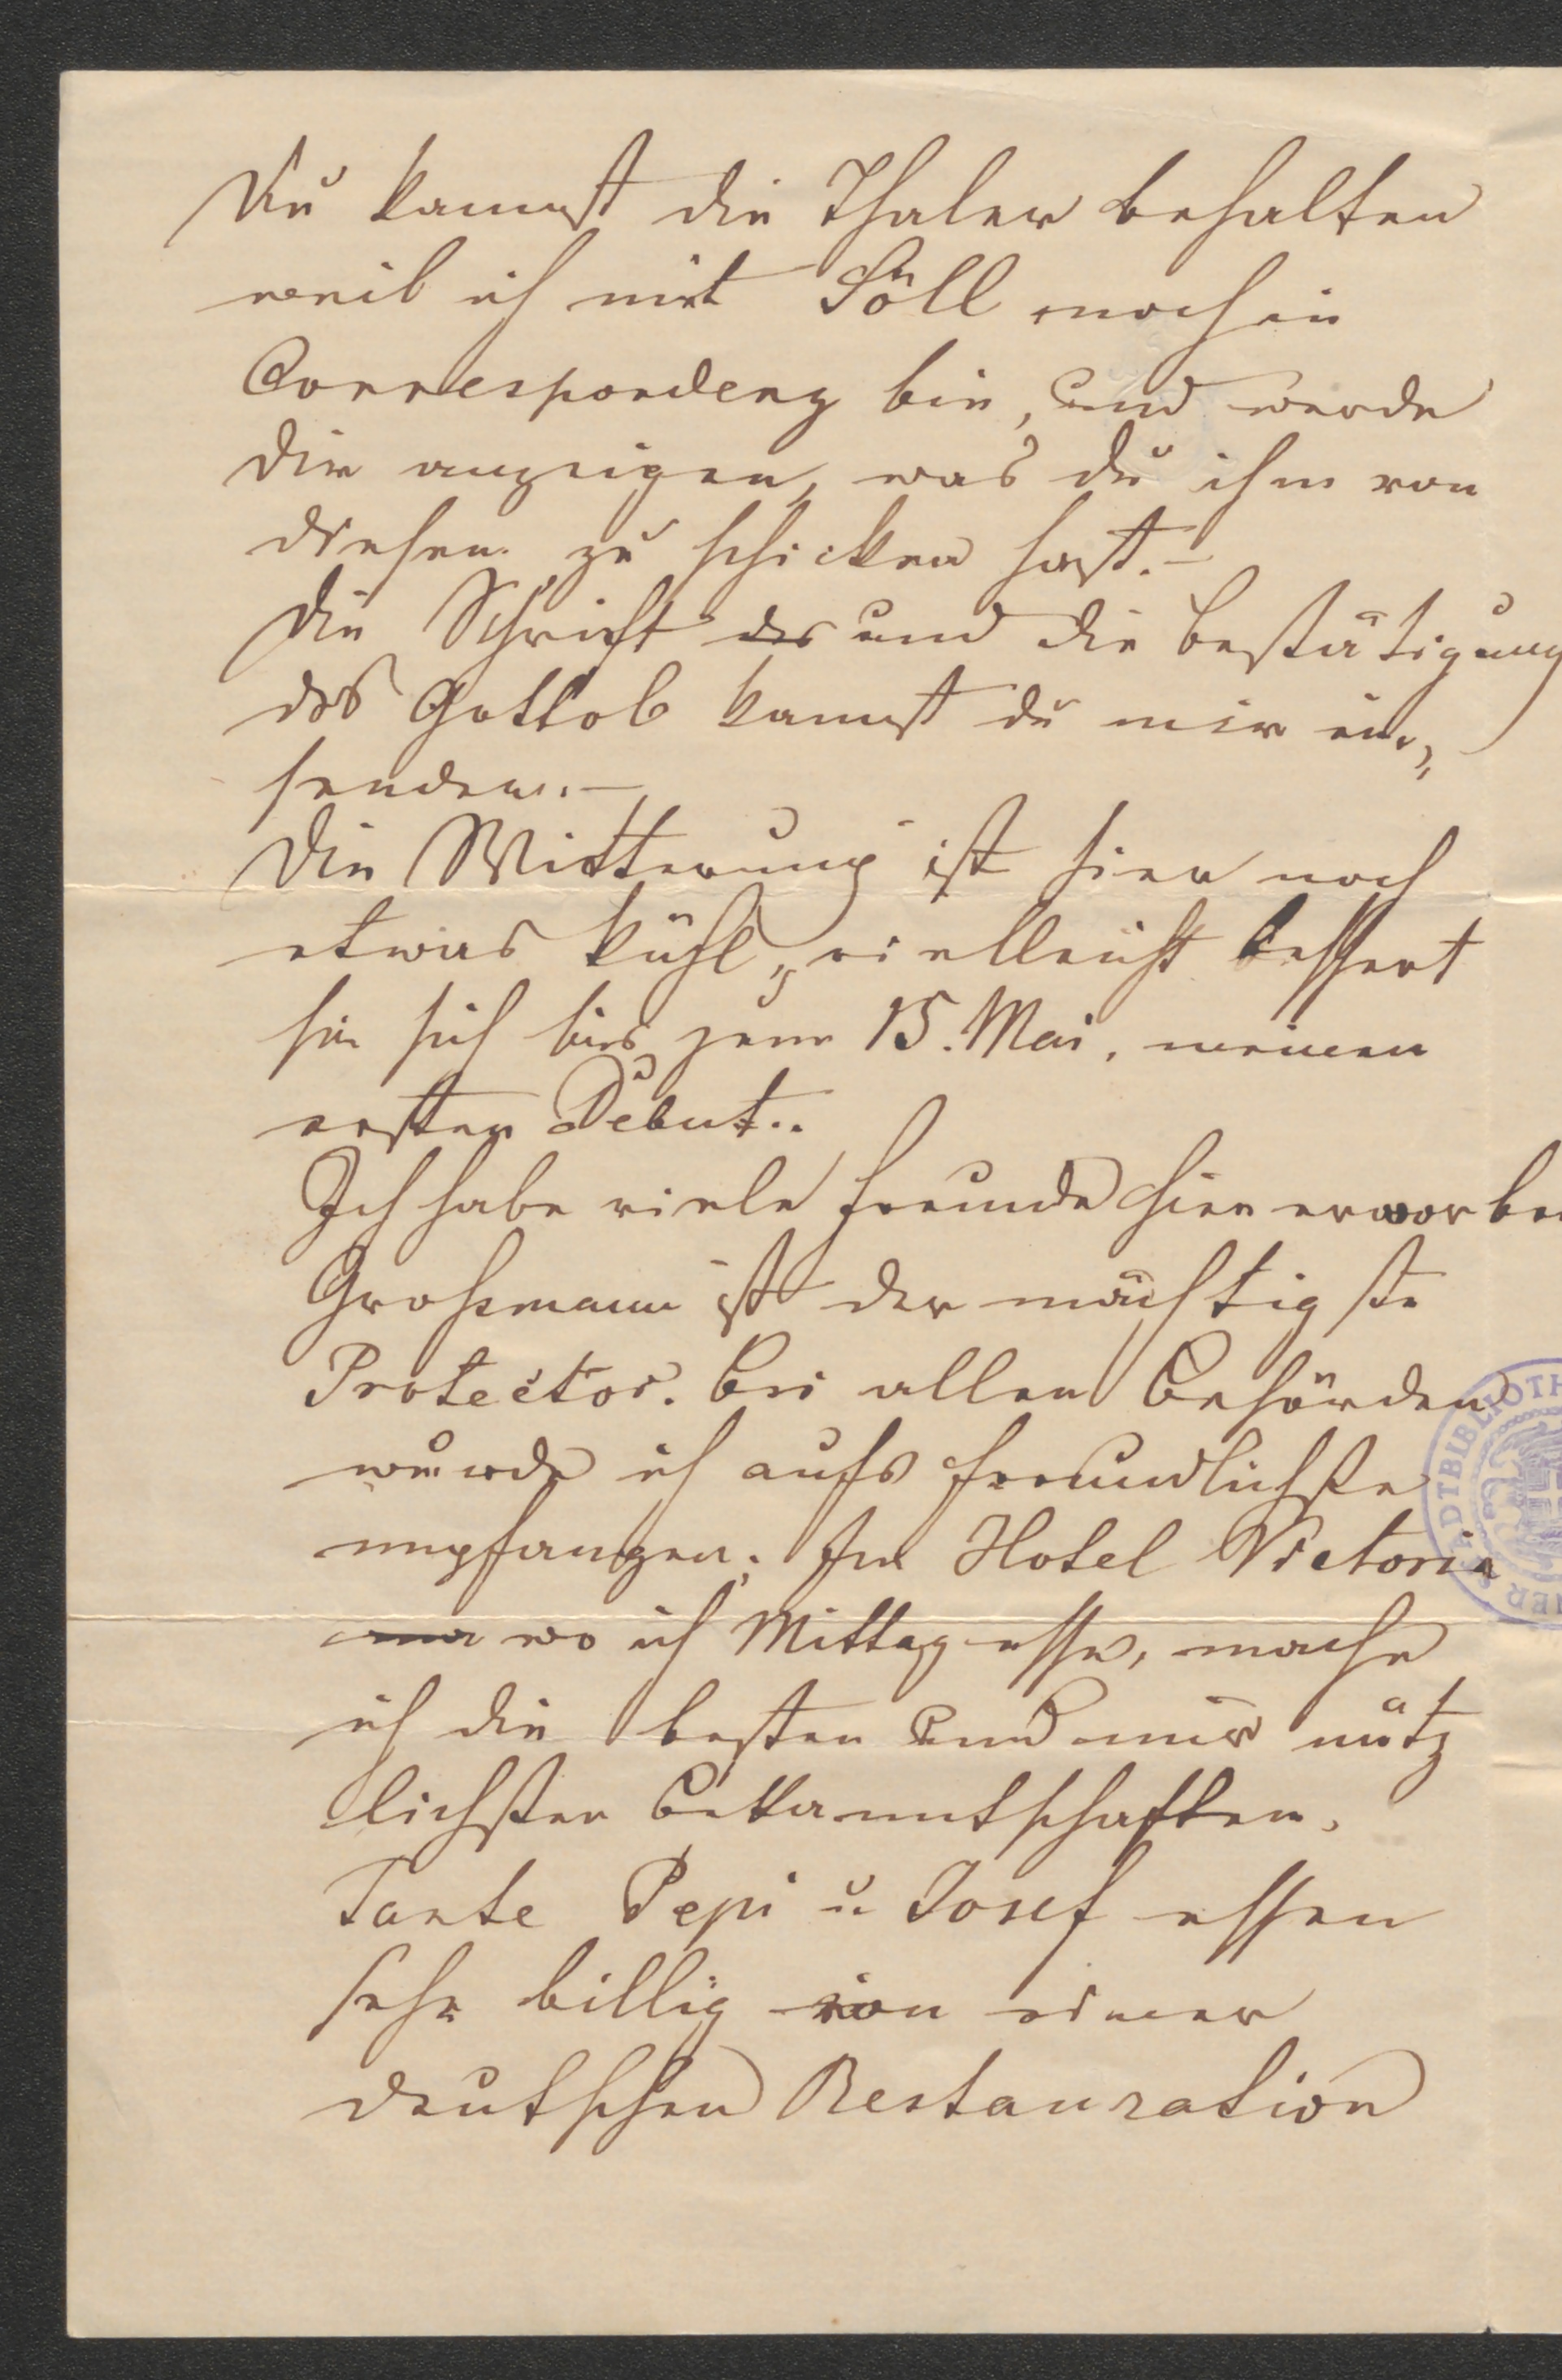 Du kannst die Thaler behalten
weil ich mit Söll noch in
Correspondenz bin, und werde
dir anzeigen, was du ihm von
diesen zu schicken hast.-
Die Schrift des und die Bestätigung
des Gottlob kannst du mir ein„
senden.-
Die Witterung ist hier noch
etwas kühl, vielleicht bessert
sie sich bis zum 15. Mai, meinem
ersten Debut..
Ich habe viele Freunde hier erworben
Großmann ist der mächtigste
Protector. Bei allen Behörden
wurde ich aufs freundlichste
empfangen. Im Hotel Victoria
wo ich Mittag esse, mache
ich die besten und mir nütz
lichsten Bekanntschaften.
Tante Pepi u Josef essen
sehr billig von einer
deutschen Restauration